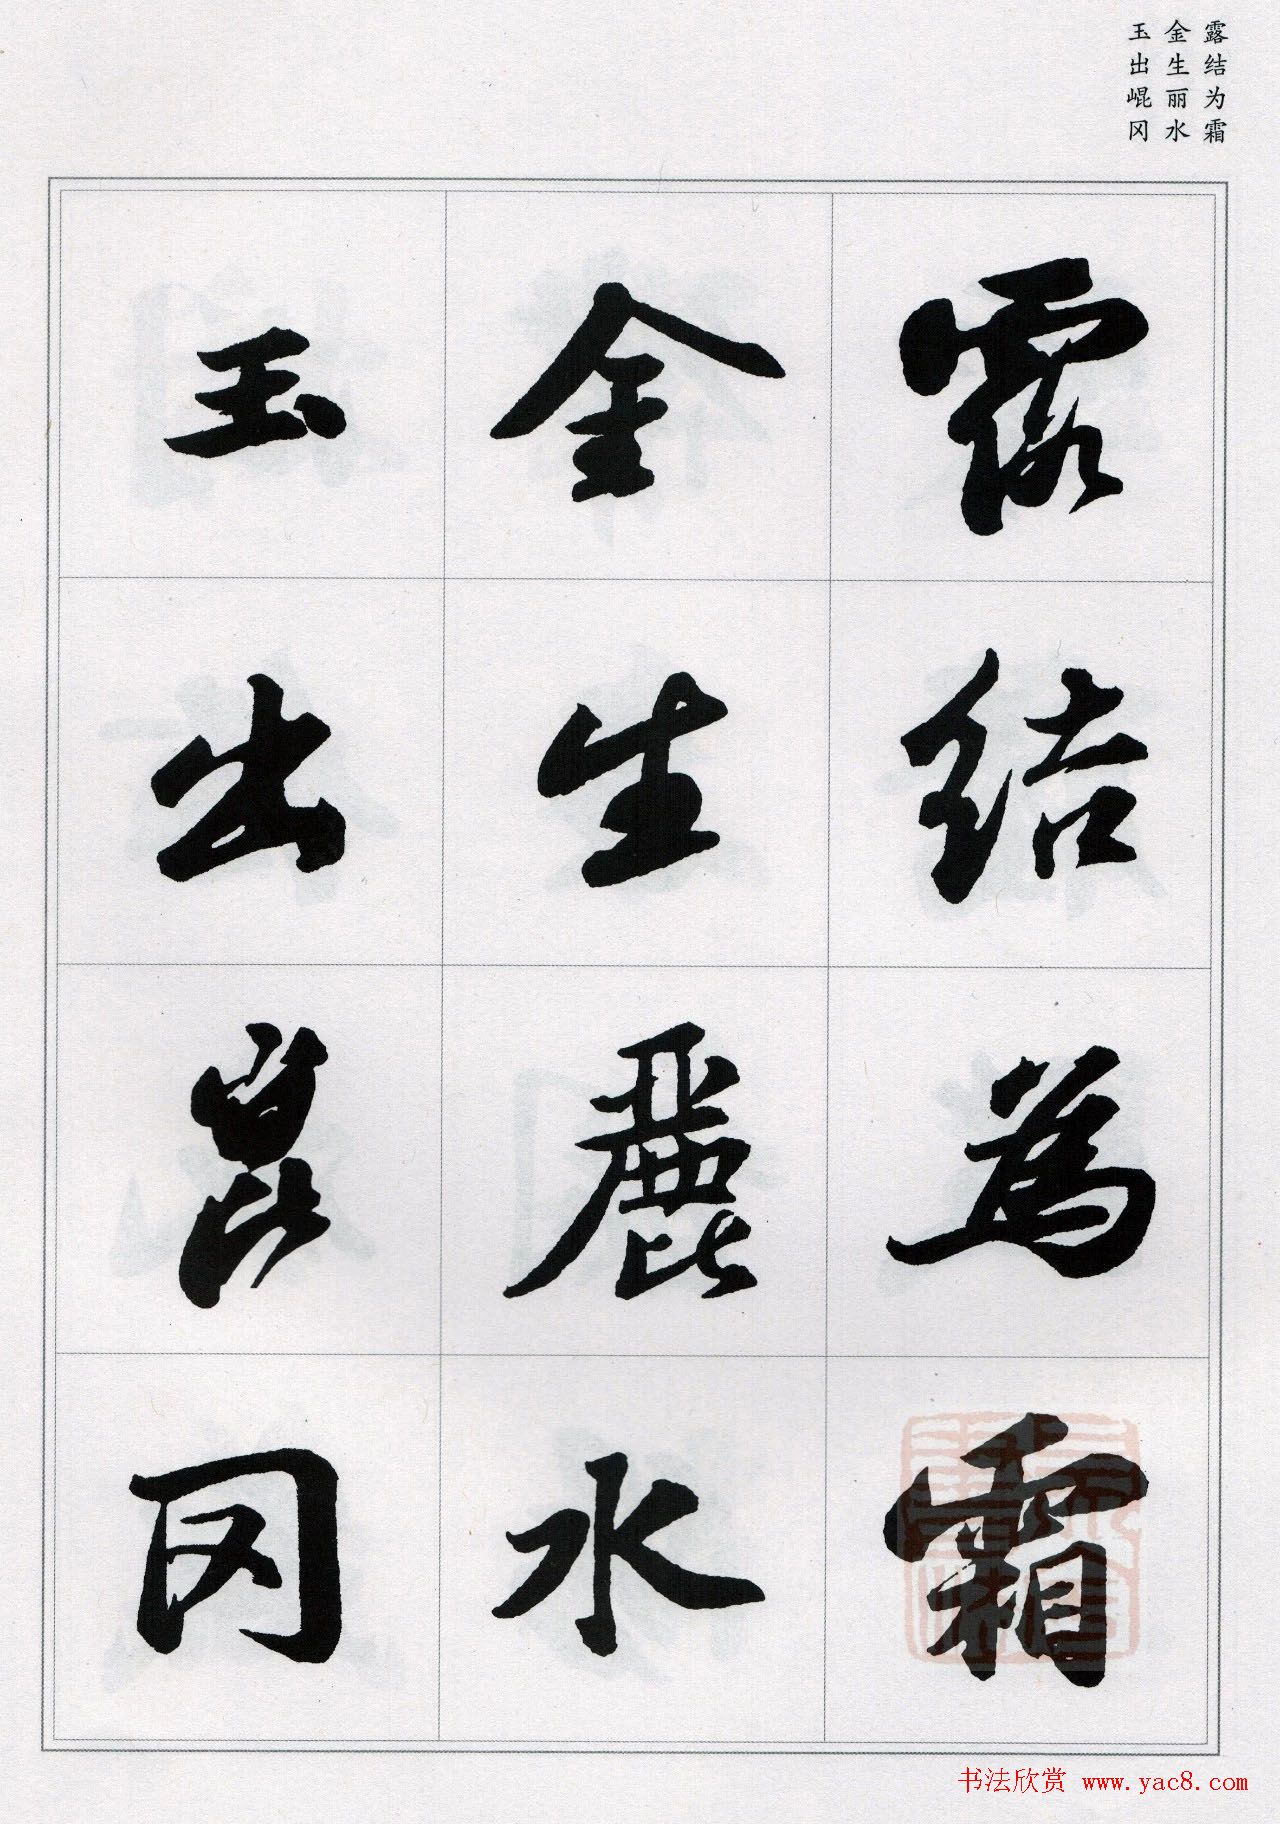 露结为霜
金生丽水
玉出崐冈
露結為霜
金生麗水
玉出崑冈
书法欣赏 www.yac8.com